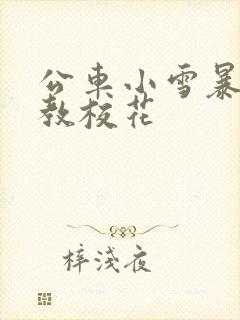 公車小雪暴
教校花
梓淺夜